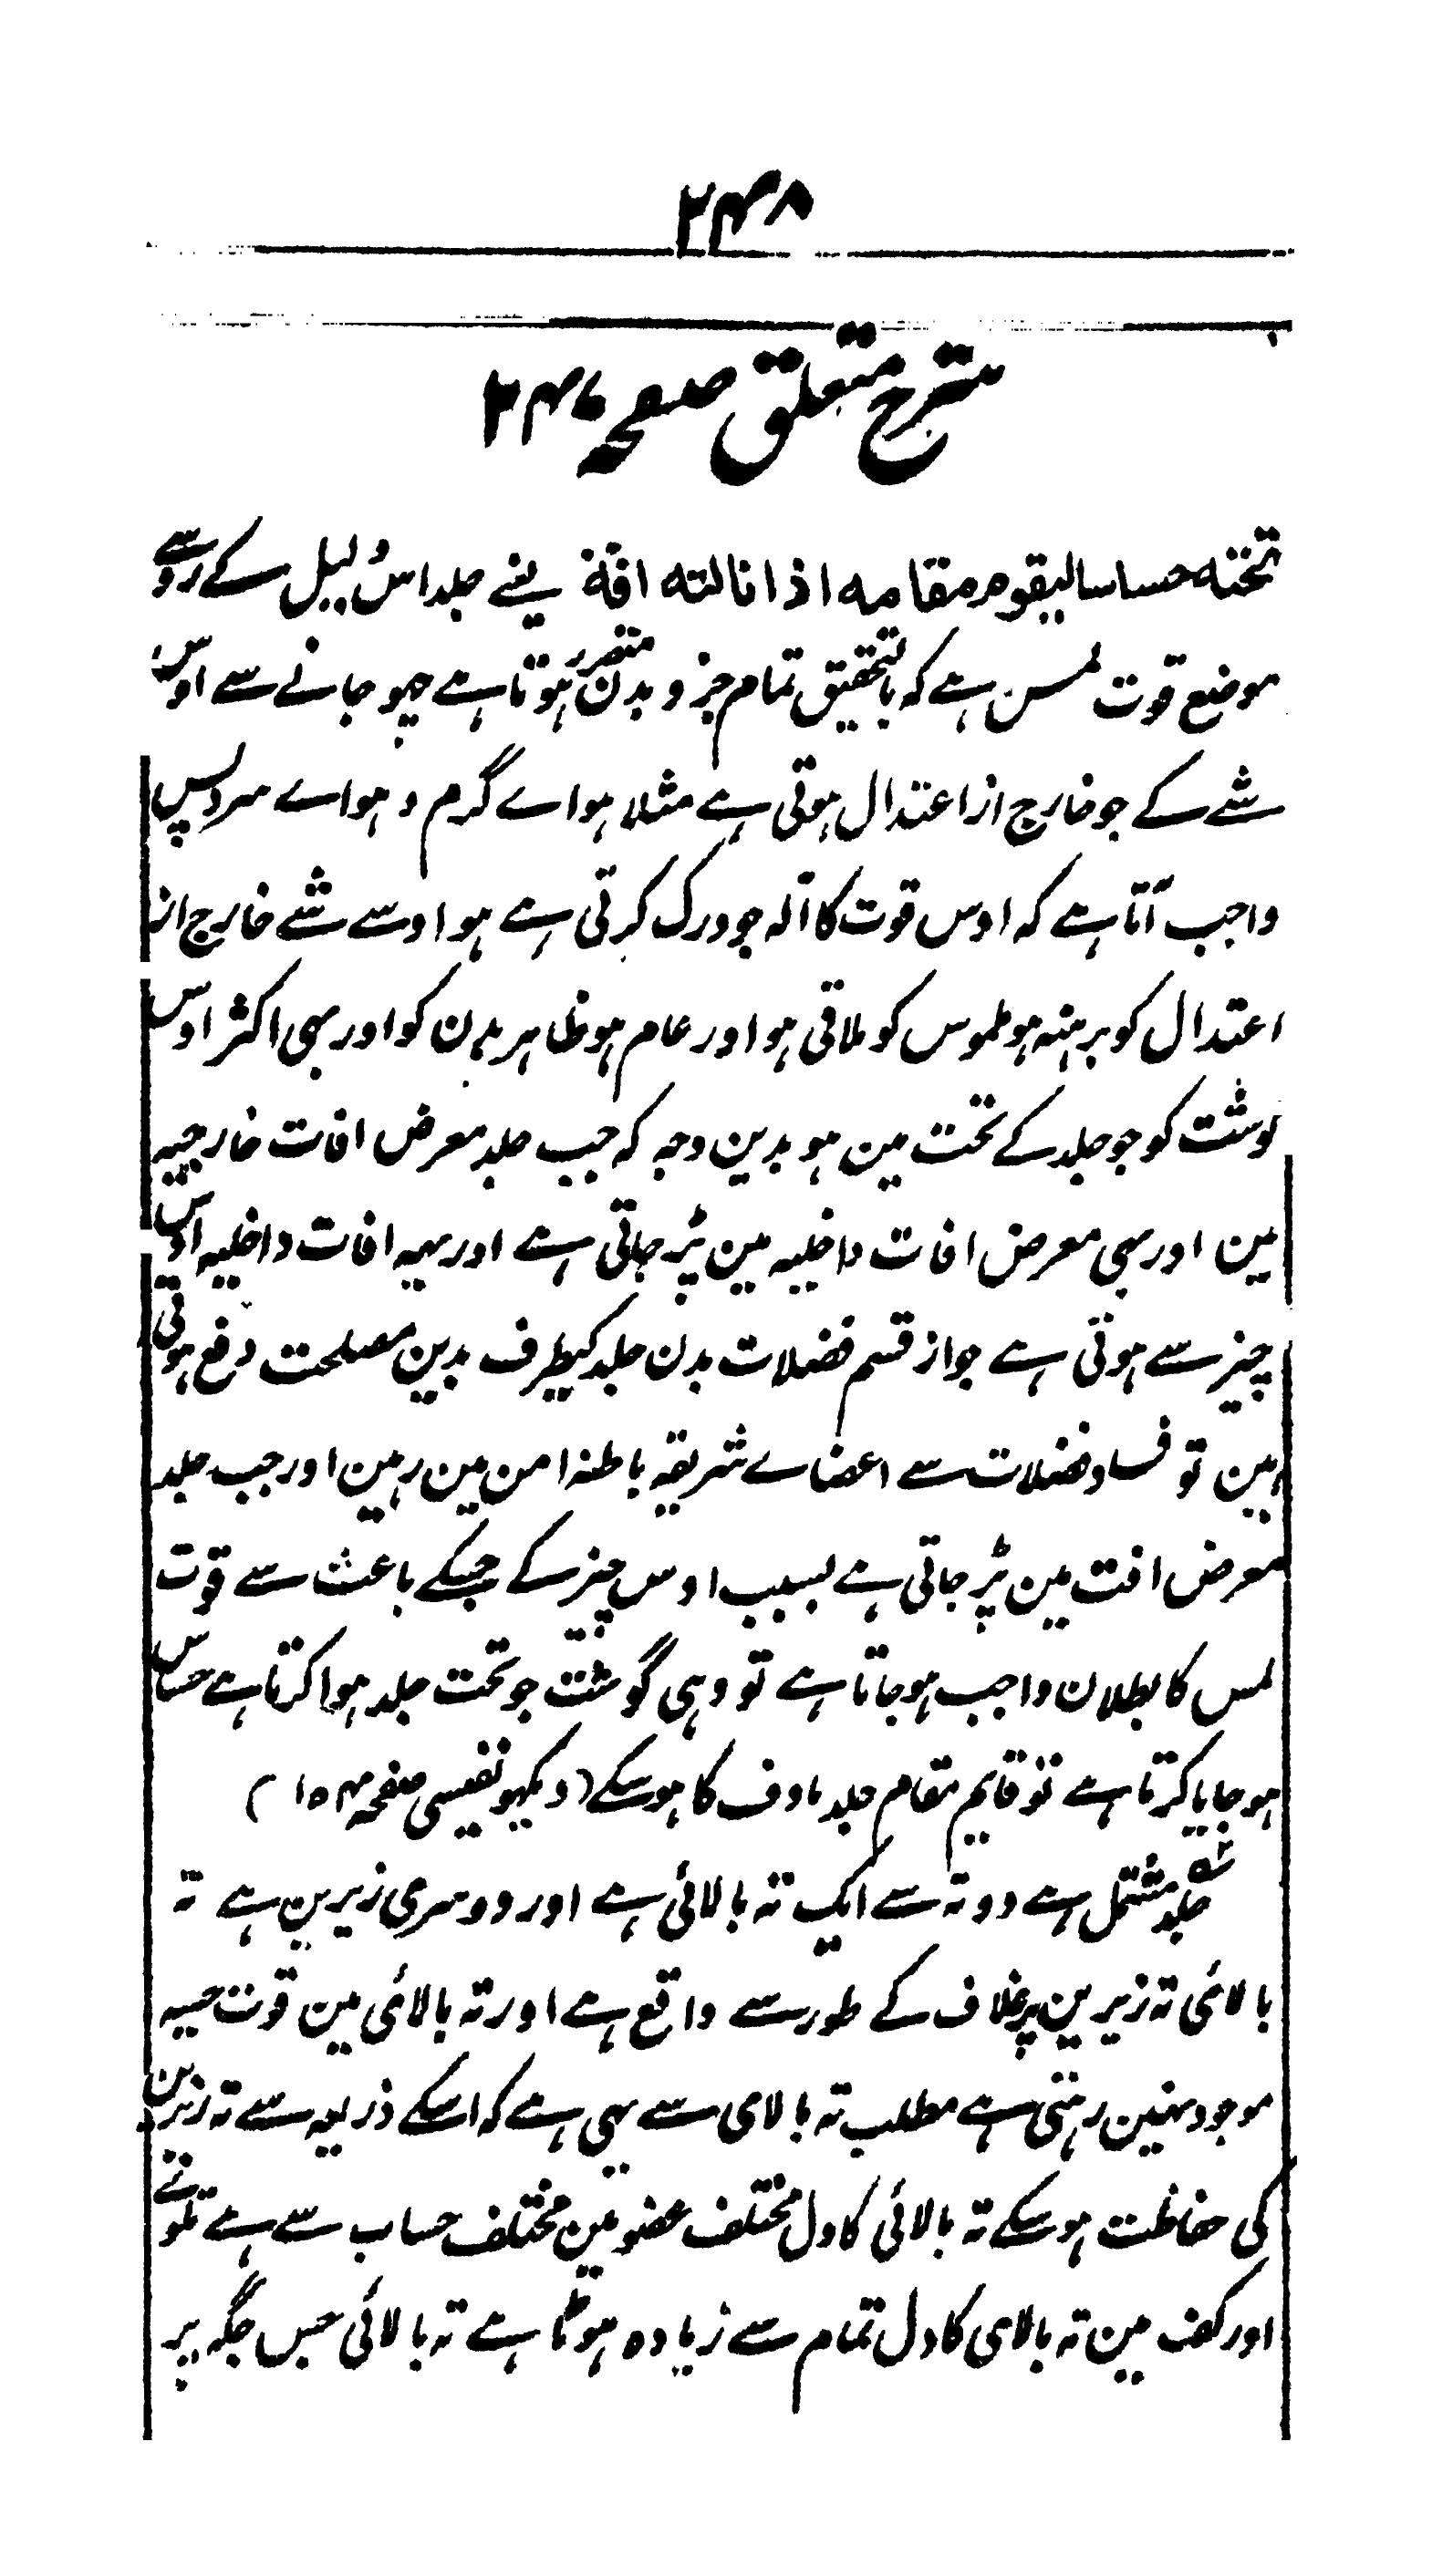 ۲۴۸
شرح متعلق صفحہ ۲۴۷
تحتہ حساسا لیقوم مقامہ اذا نالتہ افۃ یعنے جلد اس دلیل کے روسے
موضع قوت لمس ہے کہ بالتحقیق تمام جزو بدن متضرر ہوتا ہے چھو جانے سے اوس
شے کے جو خارج از اعتدال ہوتی ہے مثلا ہواے گرم و ہواے سرد پس
واجب آتا ہے کہ اوس قوت کا آلہ جو درک کرتی ہے ہو اوسے شے خارج از
اعتدال کو برہنہ ہو ملموس کو ملاقی ہو اور عام ہو ظاہر بدن کو اور بہی اکثر اوس
گوشت کو جو جلد کے تحت مین ہو بدین وجہ کہ جب جلد معرض افات خارجیہ
مین اور بہی معرض افات داخلیہ مین پڑ جاتی ہے اور یہہ افات داخلیہ اوس
چیز سے ہوتی ہے جو از قسم فضلات بدن جلد کیطرف بدین مصلحت دفع ہوتی
ہین تو فساد فضلات سے اعضاے شریفہ باطنہ امن مین رہین اور جب جلد
معرض افت مین پڑ جاتی ہے بسبب اوس چیز کے جسکے باعث سے قوت
لمس کا بطلان واجب ہو جاتا ہے تو وہی گوشت جو تحت جلد ہوا کرتا ہے حساس
ہو جایا کرتا ہے تو قایم مقام جلد ماوف کا ہو سکے (دیکہو نفیسی صفحہ ۱۵۴)
جلد مشتمل ہے دو تہ سے ایک تہ بالائی ہے اور دوسری زیرین ہے تہ
بالائی تہ زیرین پر غلاف کے طور سے واقع ہے اور تہ بالائی مین قوت حسیہ
موجود نہین رہتی ہے مطلب تہ بالای سے یہی ہے کہ اسکے ذریعہ سے تہ زیرین
کی حفاظت ہو سکے تہ بالائی کا دل مختلف عضو مین مختلف حساب سے ہے تلوے
اور کف مین تہ بالای کا دل تمام سے زیادہ ہوتا ہے تہ بالائی جس جگہ پر